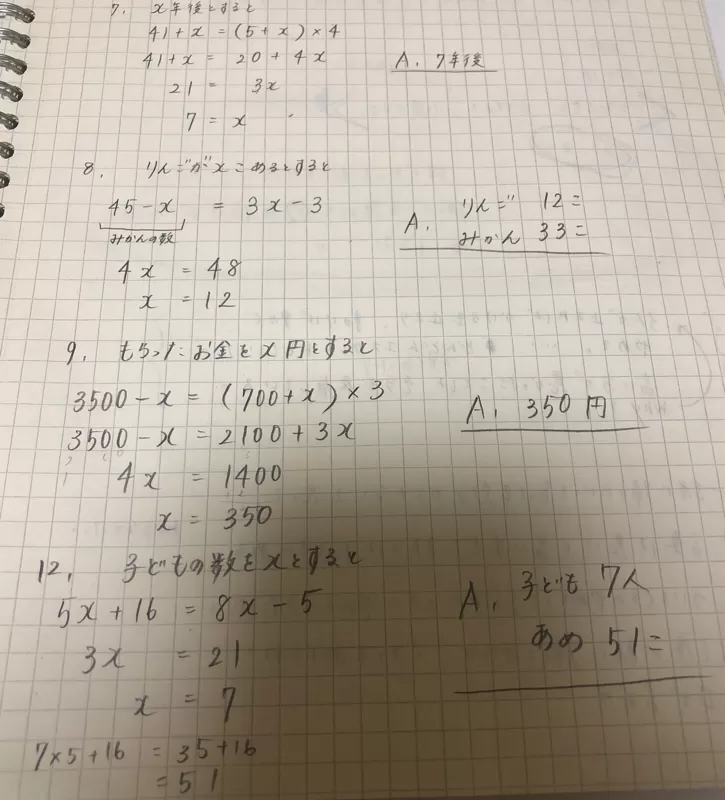 7. x年後とすると
41+x = (5+x)×4
41+x = 20+4x
21 = 3x
7 = x
A. 7年後
8. りんごがxこあるとすると
45-x = 3x-3
みかんの数
4x = 48
x = 12
A. りんご 12こ
みかん 33こ
9. もらったお金をx円とすると
3500-x = (700+x)×3
3500-x = 2100+3x
4x = 1400
x = 350
A. 350円
12. 子どもの数をxとすると
5x+16 = 8x-5
3x = 21
x = 7
A. 子ども 7人
あめ 51こ
7×5+16 = 35+16
= 51